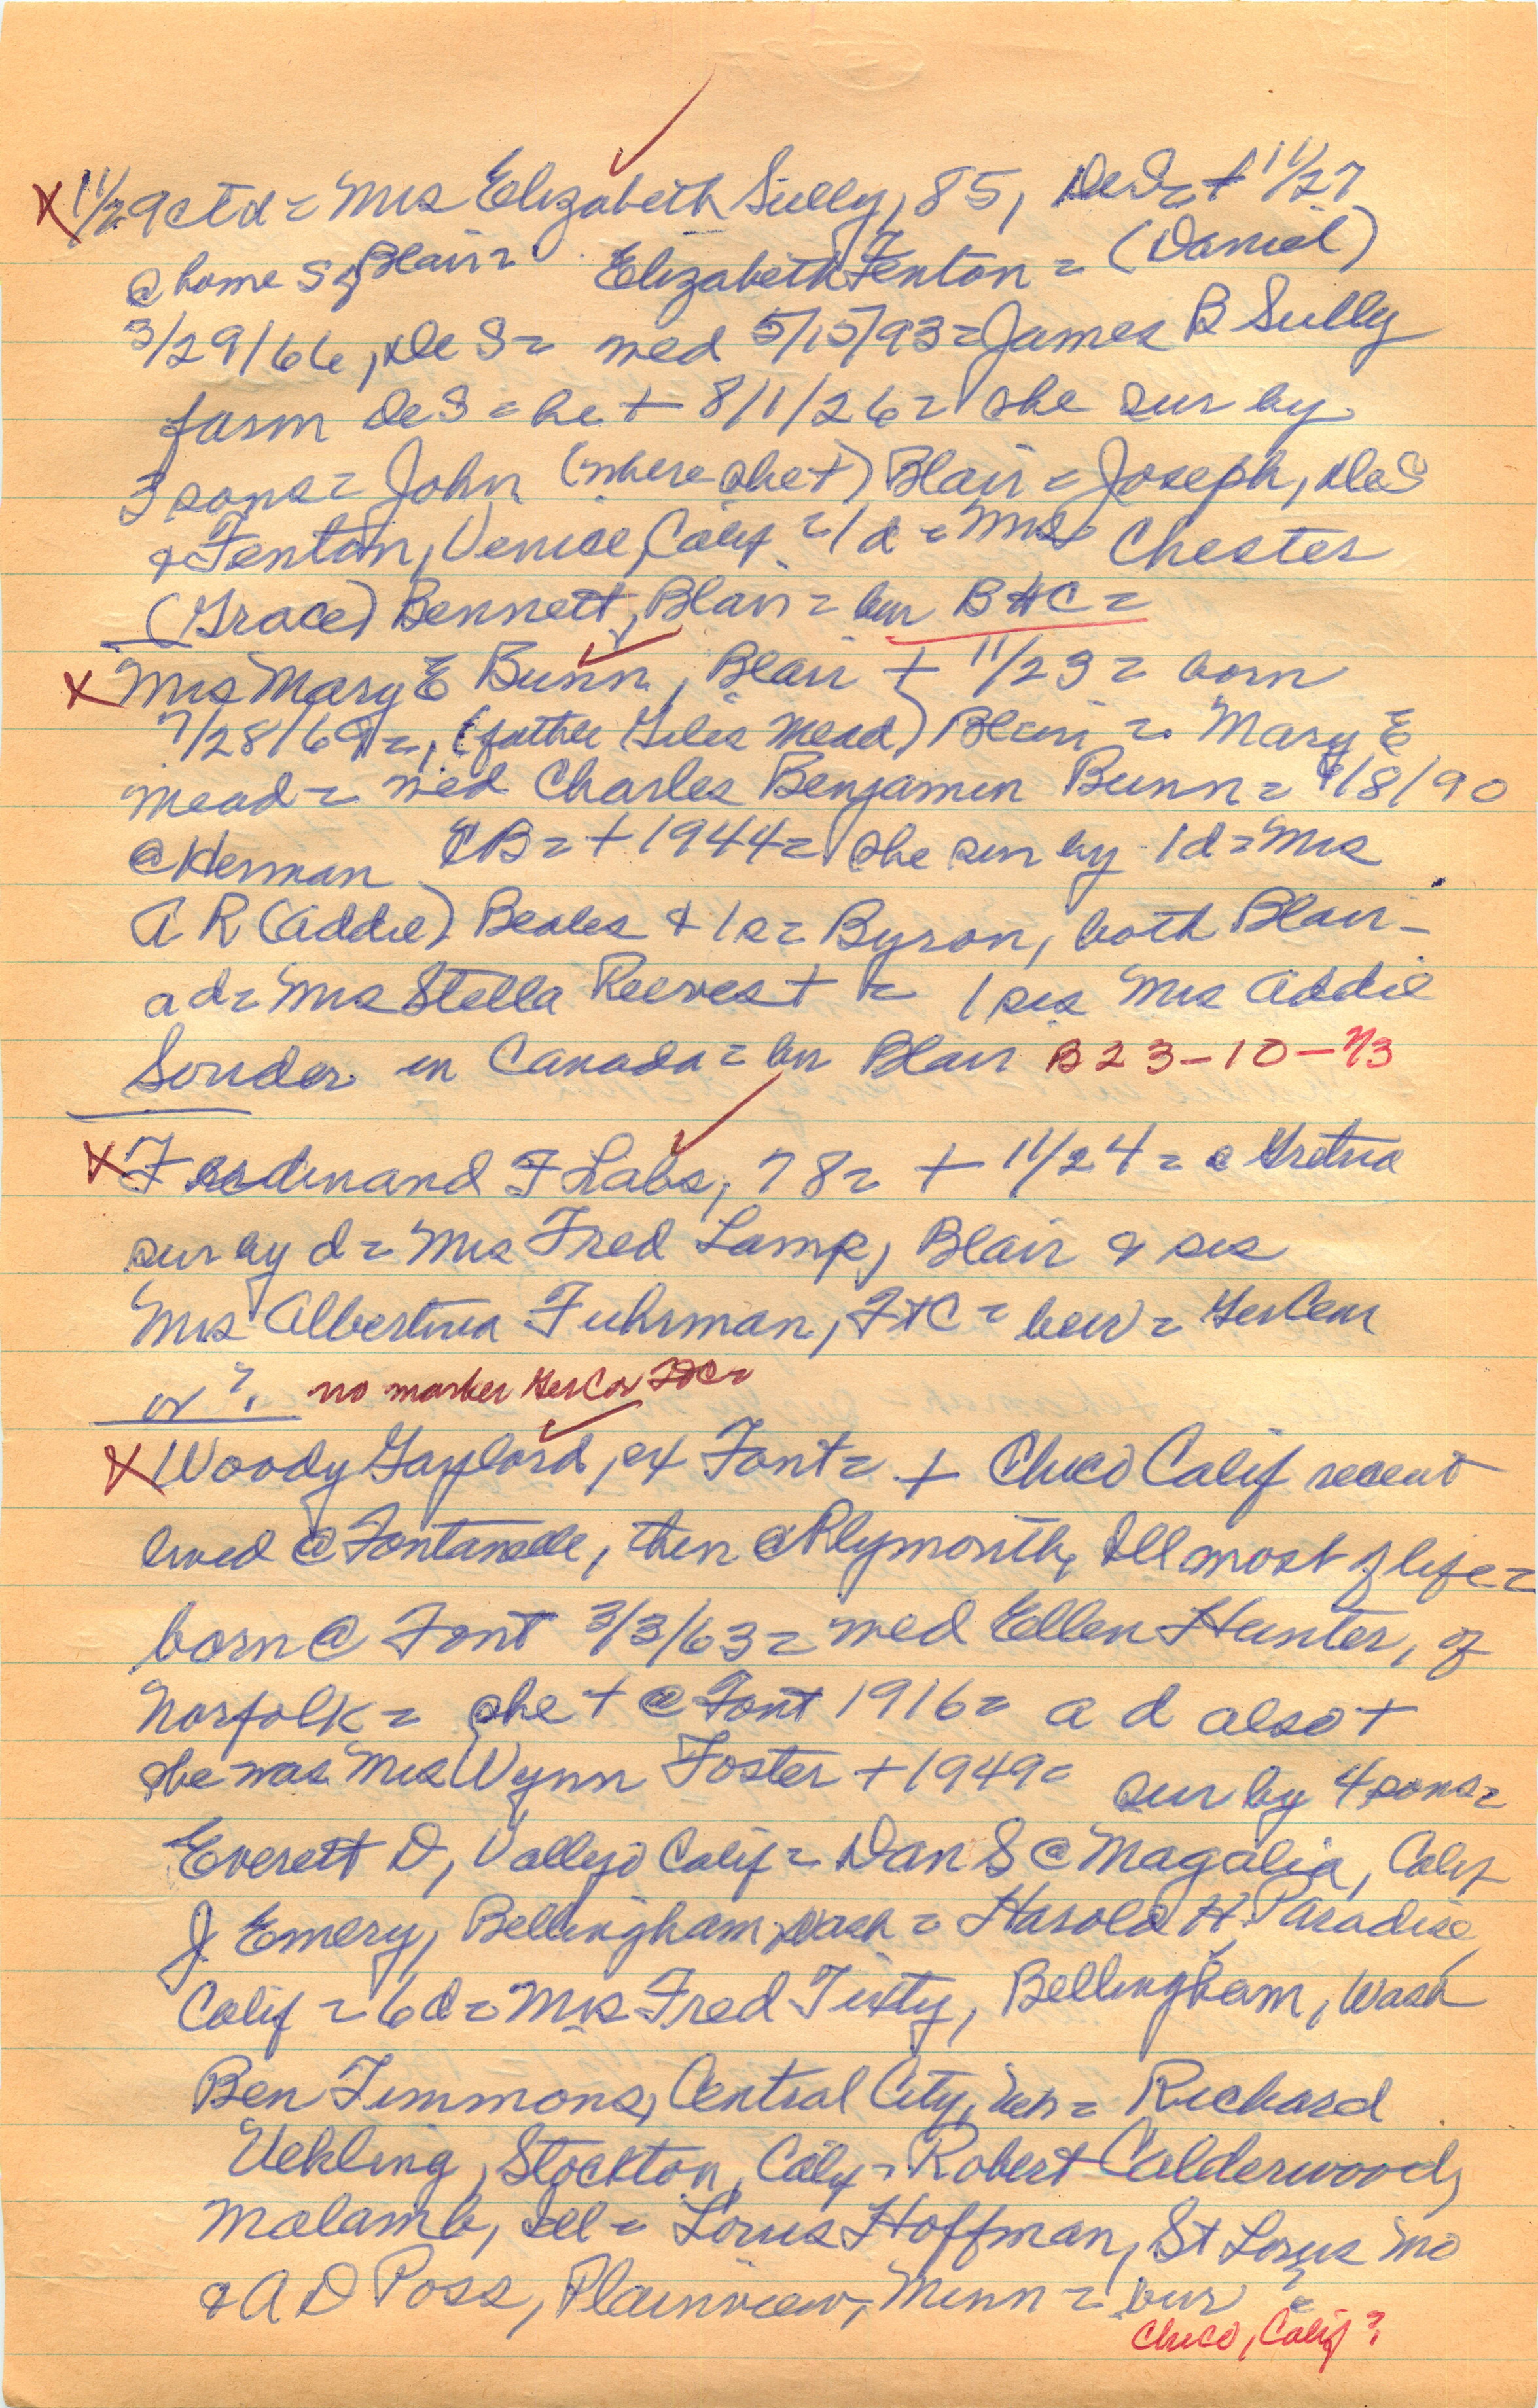 X 11/29 ctd = Mrs Elizabeth Sully, 85, DeS = + 11/27
@ home S of Blair = Elizabeth Fenton = (Daniel)
3/29/66, DeS = med 5/15/93 = James B Sully
farm DeS = he + 8/1/26 = she sur by
3 sons = John (where she +) Blair = Joseph, DeS
& Fenton, Venice, Calif = 1 d = Mrs Chester
(Grace) Bennett, Blair = bur B#C =
X Mrs Mary E Bunn, Blair + 11/23 = born
7/28/69 =, (father Giles Mead) Blair = Mary E
Mead = med Charles Benjamin Bunn = 9/8/90
@ Herman CB = + 1944 = she sur by 1 d = Mrs
A R (Addie) Beales & 1 s = Byron, both Blair -
a d = Mrs Stella Reeves + = 1 sis Mrs Addie
Souder in Canada = bur Blair B23-10-N3
X Ferdinand F Labs, 78 = + 11/24 = @ Gretna
sur by d = Mrs Fred Lamp, Blair & sis
Mrs Albertina Fuhrman, FtC = bur = GerCem
or ?. no marker GerCor FtC =
X Woody Gaylord, ex Font = + Chico Calif recent
lived @ Fontanelle, then @ Plymouth, Ill most of life =
born @ Font 3/3/63 = med Ellen Hunter, of
Norfolk = she + @ Font 1916 = a d also +
she was Mrs Wynn Foster + 1949 = sur by 4 sons =
Everett D, Vallejo Calif = Dan S @ Magalia, Calif
J Emery, Bellingham, Wash = Harold H, Paradise,
Calif = 6 d = Mrs Fred Tufty, Bellingham, Wash
Ben Timmons, Central City, Neb = Richard
Uehling, Stockton, Calif = Robert Calderwood,
Malamb, Ill = Louis Hoffman, St Louis Mo
& A D Poss, Plainview, Minn = bur ?
Chico, Calif ?